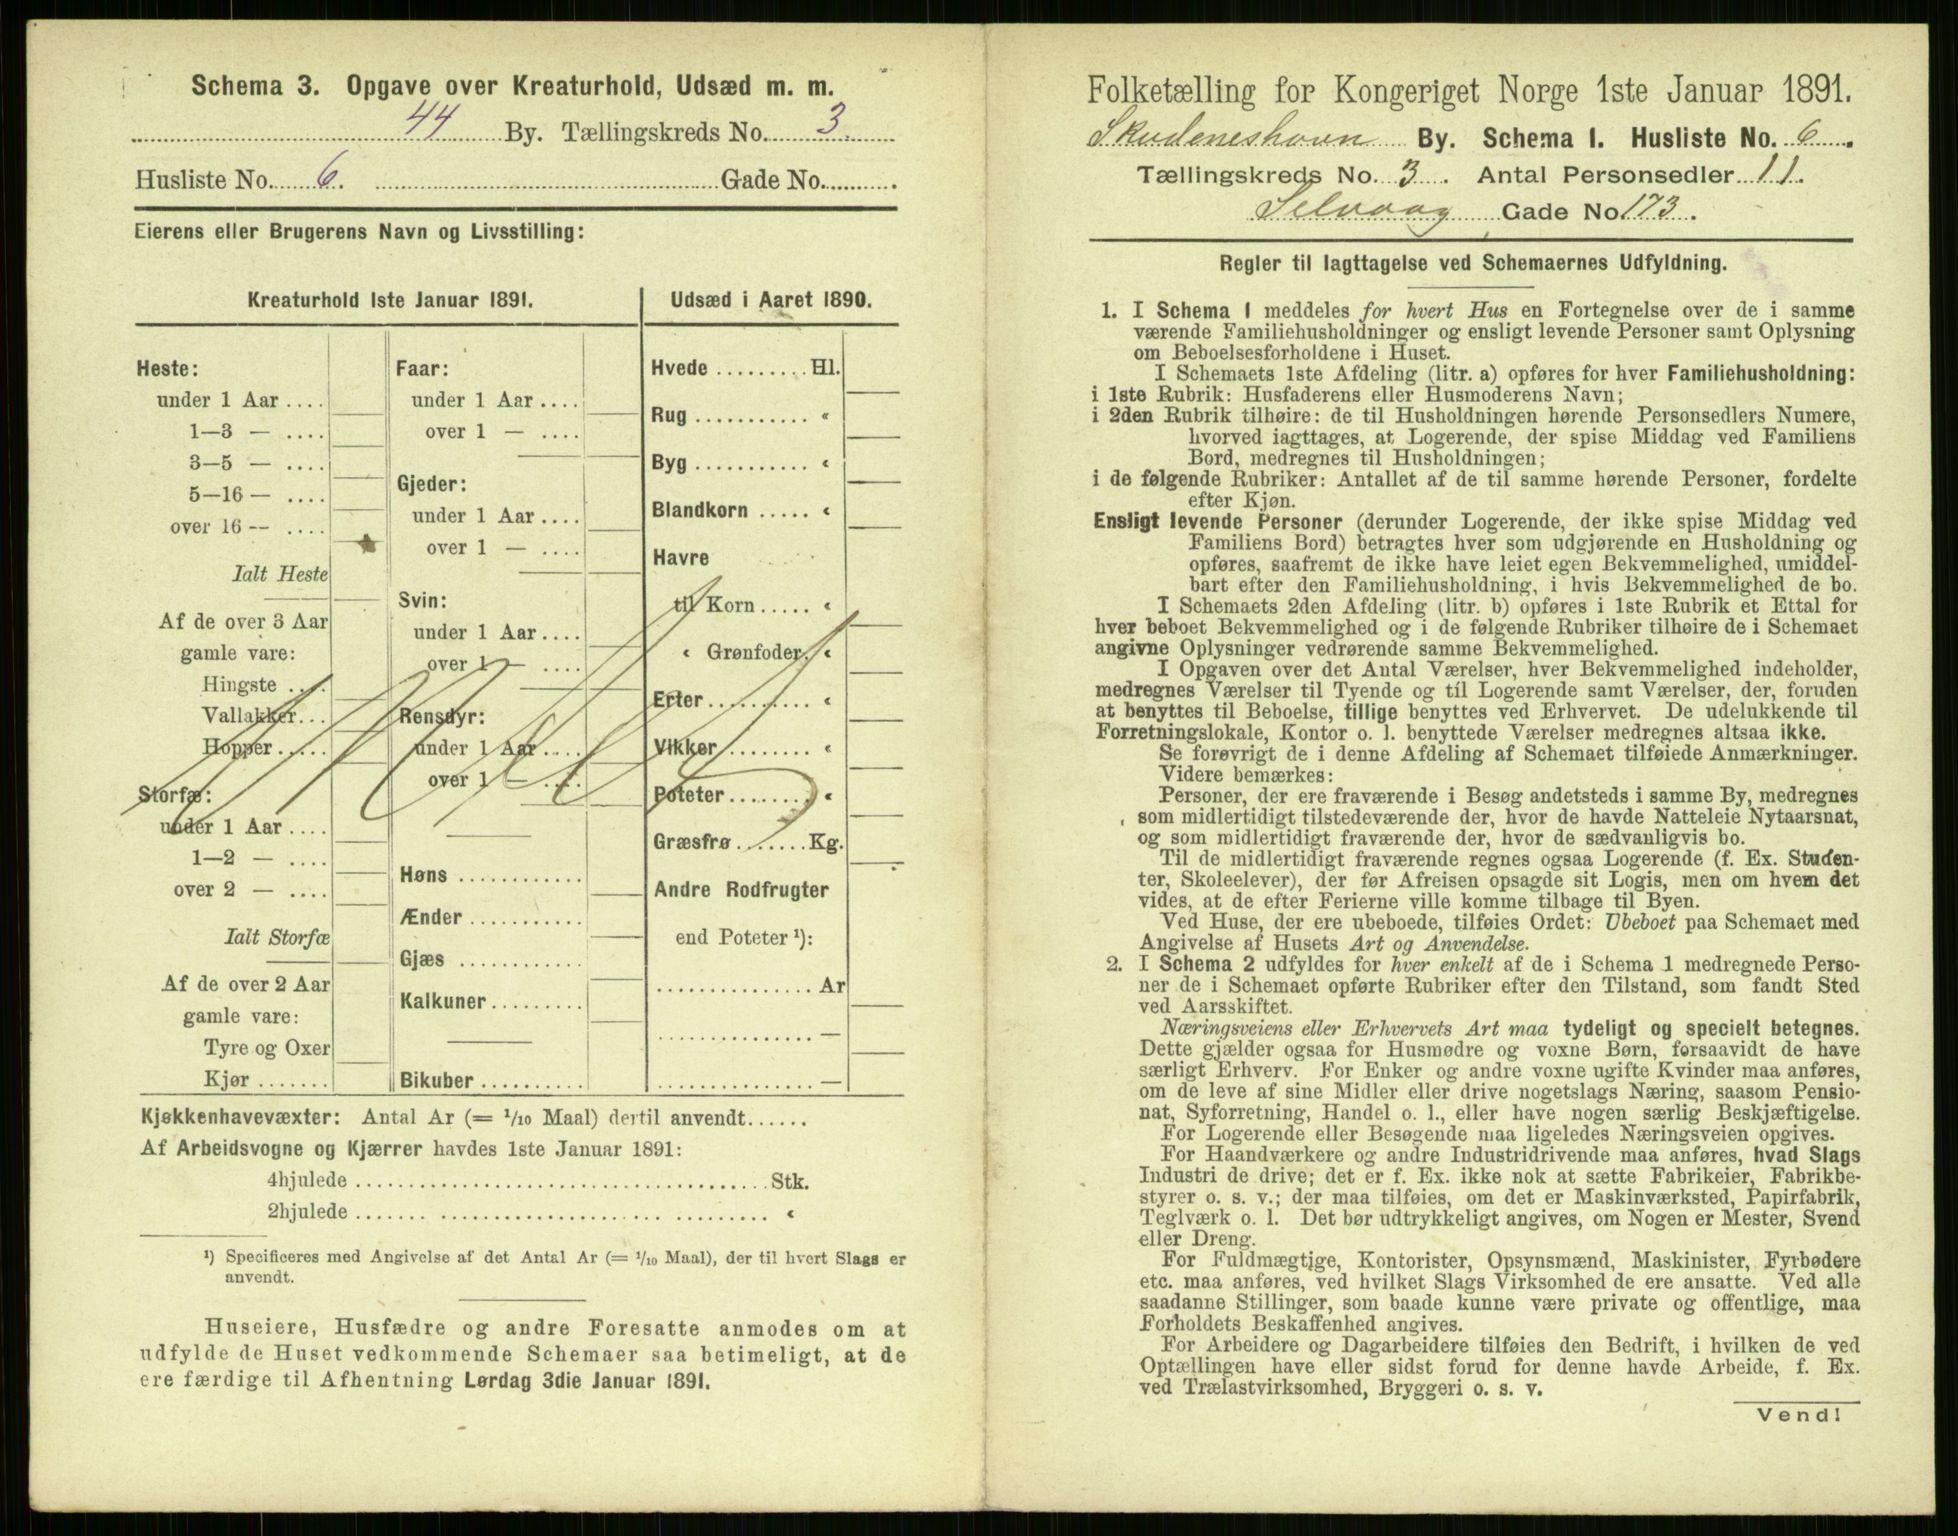 Schema 3. Opgave over Kreaturhold, Udsæd m. m.
44 By. Tællingskreds No. 3.
Husliste No. 6. Gade No.
Eierens eller Brugerens Navn og Livsstilling:
Kreaturhold 1ste Januar 1891.
Heste:
under 1 Aar ....
1—3 — ....
3—5 — ....
5—16 — ....
over 16 -- ....
Ialt Heste
Af de over 3 Aar
gamle vare:
Hingste ...
Vallakker...
Hopper .....
Storfæ:
under 1 Aar ....
1—2 — ....
over 2 — ....
Ialt Storfæ
Af de over 2 Aar
gamle vare:
Tyre og Oxer
Kjør .......
Faar:
under 1 Aar ....
over 1 — ....
Gjeder:
under 1 Aar ....
over 1 — ....
Svin:
under 1 Aar ....
over 1 — ....
Rensdyr:
under 1 Aar ....
over 1 — ....
Høns ............
Ænder ...........
Gjæs ............
Kalkuner.........
Bikuber ..........
Udsæd i Aaret 1890.
Hvede ......... Hl.
Rug ........... «
Byg ........... «
Blandkorn ..... «
Havre
til Korn ..... «
« Grønfoder. «
Erter .......... «
Vikker ........ «
Poteter ........ «
Græsfrø ....... Kg.
Andre Rodfrugter
end Poteter ¹):
............... Ar
............... —
............... —
Kjøkkenhavevæxter: Antal Ar (= 1/10 Maal) dertil anvendt......
Af Arbeidsvogne og Kjærrer havdes 1ste Januar 1891:
4hjulede ....................................... Stk.
2hjulede ....................................... «
¹) Specificeres med Angivelse af det Antal Ar (= 1/10 Maal), der til hvert Slags er
anvendt.
Huseiere, Husfædre og andre Foresatte anmodes om at
udfylde de Huset vedkommende Schemaer saa betimeligt, at de
ere færdige til Afhentning Lørdag 3die Januar 1891.
Folketælling for Kongeriget Norge 1ste Januar 1891.
Skudeneshavn By. Schema 1. Husliste No. 6.
Tællingskreds No. 3. Antal Personsedler 11.
Selvaag Gade No 173.
Regler til Iagttagelse ved Schemaernes Udfyldning.
1. I Schema 1 meddeles for hvert Hus en Fortegnelse over de i samme
værende Familiehusholdninger og ensligt levende Personer samt Oplysning
om Beboelsesforholdene i Huset.
I Schemaets 1ste Afdeling (litr. a) opføres for hver Familiehusholdning:
i 1ste Rubrik: Husfaderens eller Husmoderens Navn;
i 2den Rubrik tilhøire: de til Husholdningen hørende Personsedlers Numere,
hvorved iagttages, at Logerende, der spise Middag ved Familiens
Bord, medregnes til Husholdningen;
i de følgende Rubriker: Antallet af de til samme hørende Personer, fordelte
efter Kjøn.
Ensligt levende Personer (derunder Logerende, der ikke spise Middag ved
Familiens Bord) betragtes hver som udgjørende en Husholdning og
opføres, saafremt de ikke have leiet egen Bekvemmelighed, umiddel-
bart efter den Familiehusholdning, i hvis Bekvemmelighed de bo.
I Schemaets 2den Afdeling (litr. b) opføres i 1ste Rubrik et Ettal for
hver beboet Bekvemmelighed og i de følgende Rubriker tilhøire de i Schemaet
angivne Oplysninger vedrørende samme Bekvemmelighed.
I Opgaven over det Antal Værelser, hver Bekvemmelighed indeholder,
medregnes Værelser til Tyende og til Logerende samt Værelser, der, foruden
at benyttes til Beboelse, tillige benyttes ved Erhvervet. De udelukkende til
Forretningslokale, Kontor o. l. benyttede Værelser medregnes altsaa ikke.
Se forøvrigt de i denne Afdeling af Schemaet tilføiede Anmærkninger.
Videre bemærkes:
Personer, der ere fraværende i Besøg andetsteds i samme By, medregnes
som midlertidigt tilstedeværende der, hvor de havde Natteleie Nytaarsnat,
og som midlertidigt fraværende der, hvor de sædvanligvis bo.
Til de midlertidigt fraværende regnes ogsaa Logerende (f. Ex. Studen-
ter, Skoleelever), der før Afreisen opsagde sit Logis, men om hvem det
vides, at de efter Ferierne ville komme tilbage til Byen.
Ved Huse, der ere ubeboede, tilføies Ordet: Ubeboet paa Schemaet med
Angivelse af Husets Art og Anvendelse.
2. I Schema 2 udfyldes for hver enkelt af de i Schema 1 medregnede Perso-
ner de i Schemaet opførte Rubriker efter den Tilstand, som fandt Sted
ved Aarsskiftet.
Næringsveiens eller Erhvervets Art maa tydeligt og specielt betegnes.
Dette gjælder ogsaa for Husmødre og voxne Børn, forsaavidt de have
særligt Erhverv. For Enker og andre voxne ugifte Kvinder maa anføres,
om de leve af sine Midler eller drive nogetslags Næring, saasom Pensio-
nat, Syforretning, Handel o. l., eller have nogen særlig Beskjæftigelse.
For Logerende eller Besøgende maa ligeledes Næringsveien opgives.
For Haandværkere og andre Industridrivende maa anføres, hvad Slags
Industri de drive; det er f. Ex. ikke nok at sætte Fabrikeier, Fabrikbe-
styrer o. s. v.; der maa tilføies, om det er Maskinværksted, Papirfabrik,
Teglværk o. l. Det bør udtrykkeligt angives, om Nogen er Mester, Svend
eller Dreng.
For Fuldmægtige, Kontorister, Opsynsmænd, Maskinister, Fyrbødere
etc. maa anføres, ved hvilket Slags Virksomhed de ere ansatte. Ved alle
saadanne Stillinger, som baade kunne være private og offentlige, maa
Forholdets Beskaffenhed angives.
For Arbeidere og Dagarbeidere tilføies den Bedrift, i hvilken de ved
Optællingen have eller sidst forud for denne havde Arbeide, f. Ex.
ved Trælastvirksomhed, Bryggeri o. s. v.
Vend!